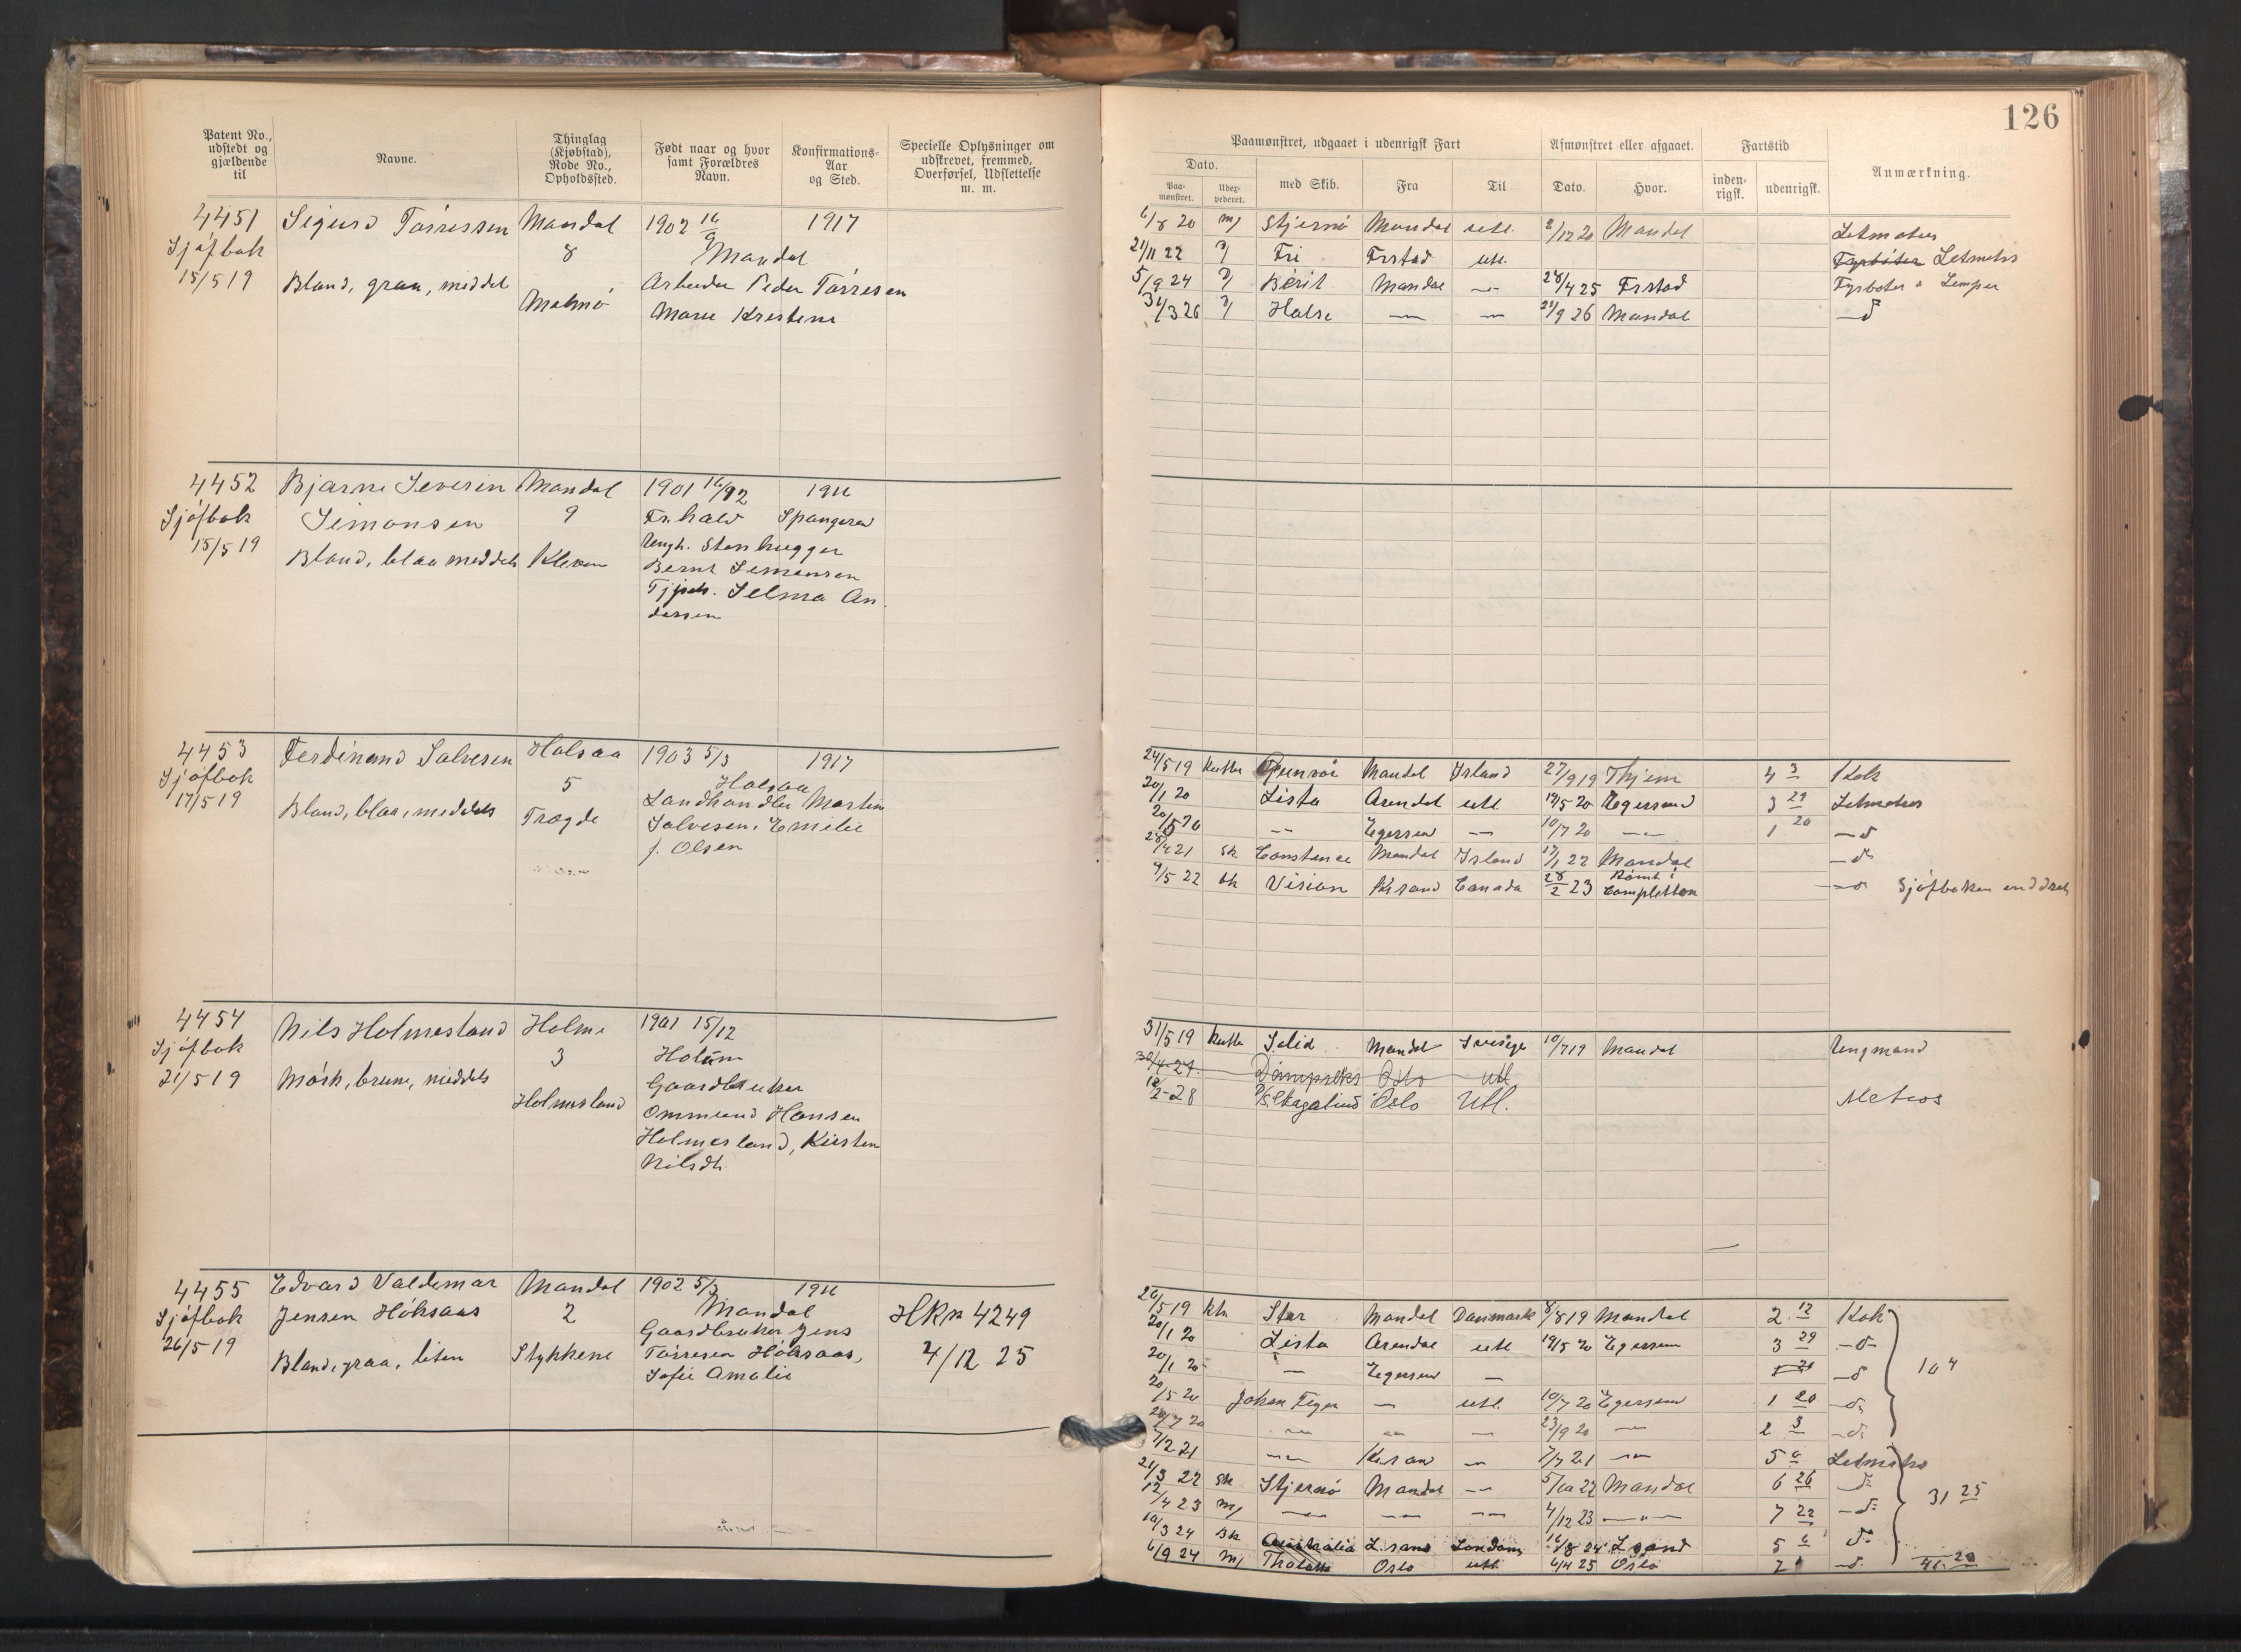 126
Patent No., udstedt og gjældende til
Navne.
Thinglag (Kjøbstad), Rode No., Opholdssted.
Født naar og hvor samt Forældres Navn.
Konfirmations-Aar og Sted.
Specielle Oplysninger om udskrevet, fremmed, Overførsel, Udslettelse m. m.
Paamønstret, udgaaet i udenrigsk Fart
Afmønstret eller afgaaet.
Fartstid
Anmærkning.
Dato.
Paa-mønstret.
med Skib.
Fra
Til
Dato.
Hvor.
inden-rigsk.
udenrigsk.
4451 Sigurd Tørressen Mandal 1902 16/9 1917
Sjøfbok 8 Mandal
15/5 19 Bland, graa, middel Arbeider Peder Tørresen
Malmø Marie Kristine
4452 Bjarne Severin Mandal 1901 16/12
Sjøfbok Simonsen 9 Fr.hald Spangereid
15/5 19 Bland, blaa middels Kleven Ungk. Stenhugger
Bernt Simonsen
Tjpik. Selma An
dersen
4453 Ferdinand Salvesen Halsaa 1903 5/3 1917
Sjøfbok 5 Halsaa
17/5 19 Bland, blaa, middels Trægde Landhandler Martin
Salvesen, Emilie
f. Olsen
4454 Nils Holmesland Holme 1901 15/12
Sjøfbok 3 Holum
21/5 19 Mørk, brune, middels Gaardbruker
Holmesland Ommund Hansen
Holmesland, Kirsten
Nilsdt.
4455 Edvard Valdemar Mandal 1902 5/3
Sjøfbok Jensen Høksaas 2 Mandal HKr 4249
26/5 19 Gaardbruker Jens
Bland, graa, liten Stykkene Tørresen Høksaas, 4/12 25
Sofie Amalie
6/8 20 m/ Stjernø Mandal utl. 2/12 20 Mandal Letmatros
21/11 22 Fri Frstad utl. Fyrbøter Letmatros
5/9 24 Berit Mandal — 28/4 25 Frstad Fyrbøter & Lemper
31/3 26 Halse — — 21/9 26 Mandal — d
24/5 19 kutter Gunvor Mandal Island 27/9 19 Thjem 4 3 Kok
20/1 20 Lista Arendal utl 19/5 20 Egersund 3 29 Letmatros
20/5 20 — Egersun — 10/7 20 — 1 20 — d
28/4 21 sk Constance Mandal Island 17/1 22 Mandal — d
4/5 22 bk Vision Krsand Canada 28/2 23 Rømt i Campletton — d Sjøfboken inddrat
31/5 19 kutter Solid Mandal Sverige 10/7 19 Mandal Ungmand
30/4-27 Dampseks Oslo utl
18/2-28 D/S Skagalind Oslo Utl. Matros
26/5 19 ktr Stor Mandal Danmark 8/8 19 Mandal 2 12 Kok
20/1 20 Lista Arendal utl 19/5 20 Egersun 3 29 — d
20/1 20 — Egersun — — d 10 4
20/5 20 Johan Feyer — utl. 10/7 20 Egersun 1 20 — d
20/7 20 — — — 23/9 20 — 2 3 — d
7/2 21 — Krsan — 7/7 21 — 5 0 Letmatros
21/3 22 sk Stjernø Mandal — 5/10 22 Mandal 6 26 — d
12/4 23 m/ — — — 4/12 23 — 7 22 — d 31 25
10/3 24 sk Australia L.sand London 16/8 24 L.sand 5 6 d
6/9 24 m/ Thalatta Oslo utl 6/4 25 Oslo 7 — d 41 28